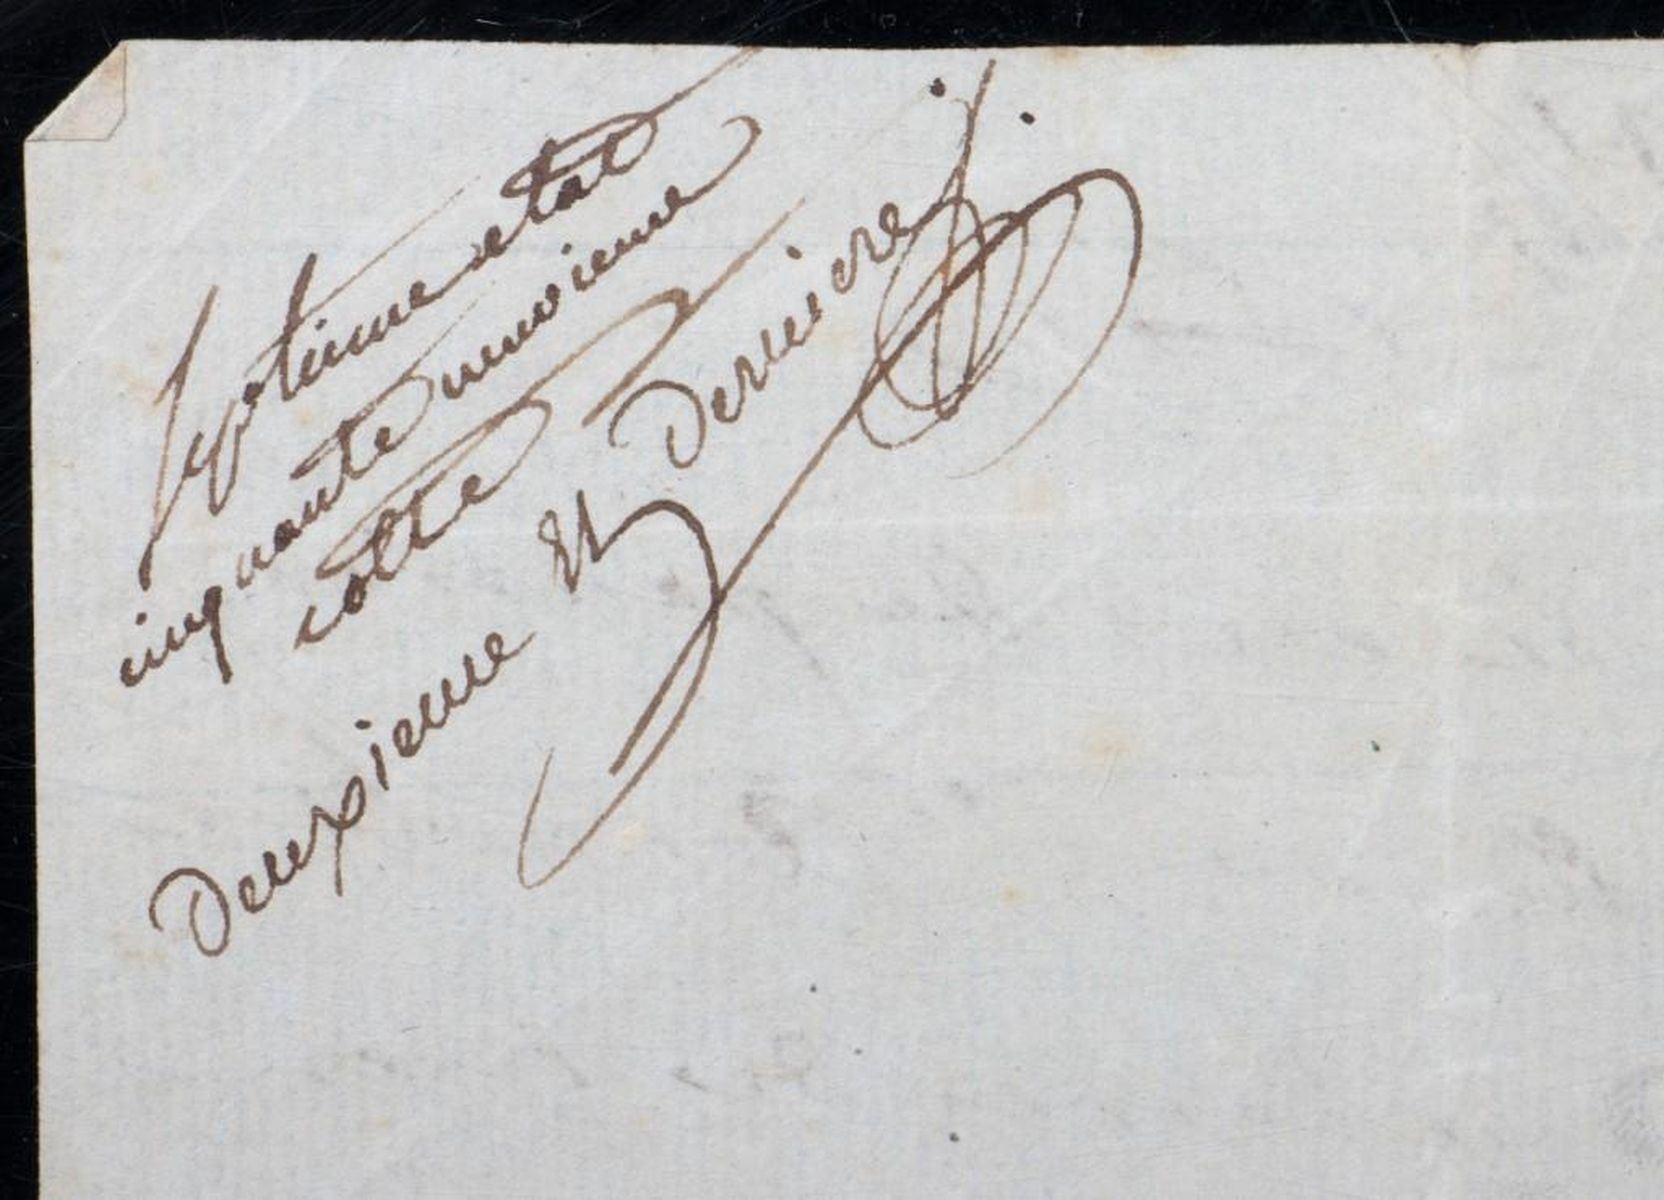 septieme etat
cinquante unoieme
cotte
Deuxieme et Derniere